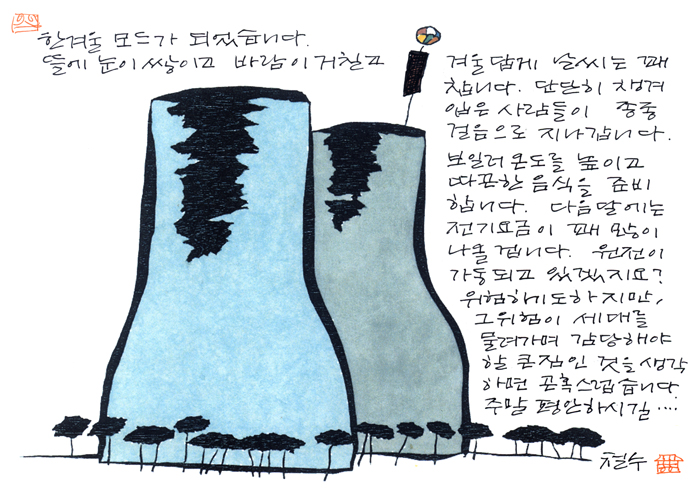 한겨울 모드가 되었습니다.
뜰에 눈이 쌓이고 바람이 거칠고
겨울답게 날씨는 꽤
찹니다. 단단히 챙겨
입은 사람들이 종종
걸음으로 지나갑니다.
보일러 온도를 높이고
따끈한 음식을 준비
합니다. 다음달에는
전기요금이 꽤 많이
나올 겁니다. 원전이
가동되고 있겠지요?
위험하기도 하지만,
그 위험이 세대를
물려가며 감당해야
할 큰짐인 것을 생각
하면 곤혹스럽습니다
주말 평안하시길....
철수